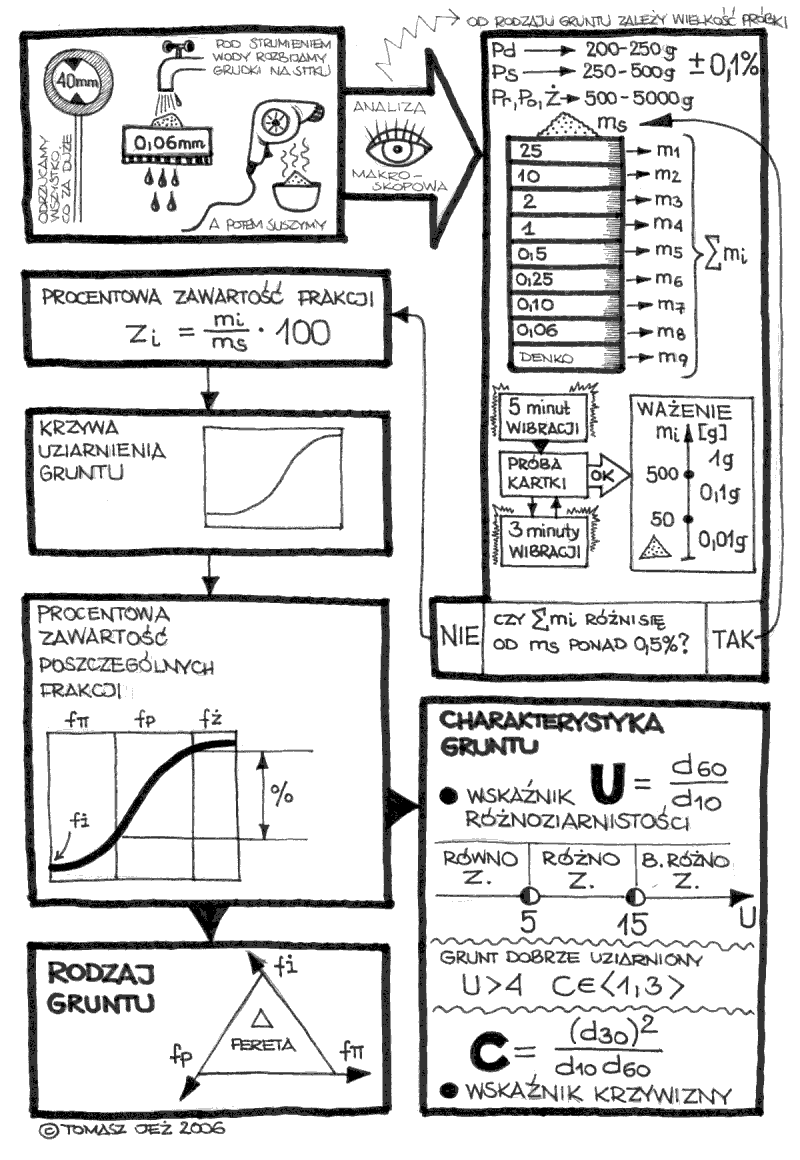 OD RODZAJU GRUNTU ZALEŻY WIELKOŚĆ PRÓBKI
40mm
ODRZUCAMY
WSZYSTKO,
CO ZA DUŻE
POD STRUMIENIEM
WODY ROZBIJAMY
GRUDKI NA SITKU
0,06mm
A POTEM SUSZYMY
ANALIZA
MAKRO-
SKOPOWA
Pd → 200-250g
Ps → 250-500g
±0,1%
Pr, Po, Ż → 500-5000g
ms
25 → m1
10 → m2
2 → m3
1 → m4
0,5 → m5
0,25 → m6
0,10 → m7
0,06 → m8
DENKO → m9
∑mi
5 minut
WIBRACJI
PRÓBA
KARTKI
OK
3 minuty
WIBRACJI
WAŻENIE
mi [g]
1g
500
0,1g
50
0,01g
NIE
CZY ∑mi RÓŻNI SIĘ
OD ms PONAD 0,5%?
TAK
PROCENTOWA ZAWARTOŚĆ FRAKCJI
Zi = mi/ms · 100
KRZYWA
UZIARNIENIA
GRUNTU
PROCENTOWA
ZAWARTOŚĆ
POSZCZEGÓLNYCH
FRAKCJI
fπ fp fż
%
fi
RODZAJ
GRUNTU
fi
△
FERETA
fp
fπ
CHARAKTERYSTYKA
GRUNTU
● WSKAŹNIK U = d60/d10
RÓŻNOZIARNISTOŚCI
RÓWNO RÓŻNO B. RÓŻNO
Z. Z. Z.
5 15 U
GRUNT DOBRZE UZIARNIONY
U>4 C∈<1,3>
C = (d30)²/d10 d60
● WSKAŹNIK KRZYWIZNY
© TOMASZ JEŻ 2006